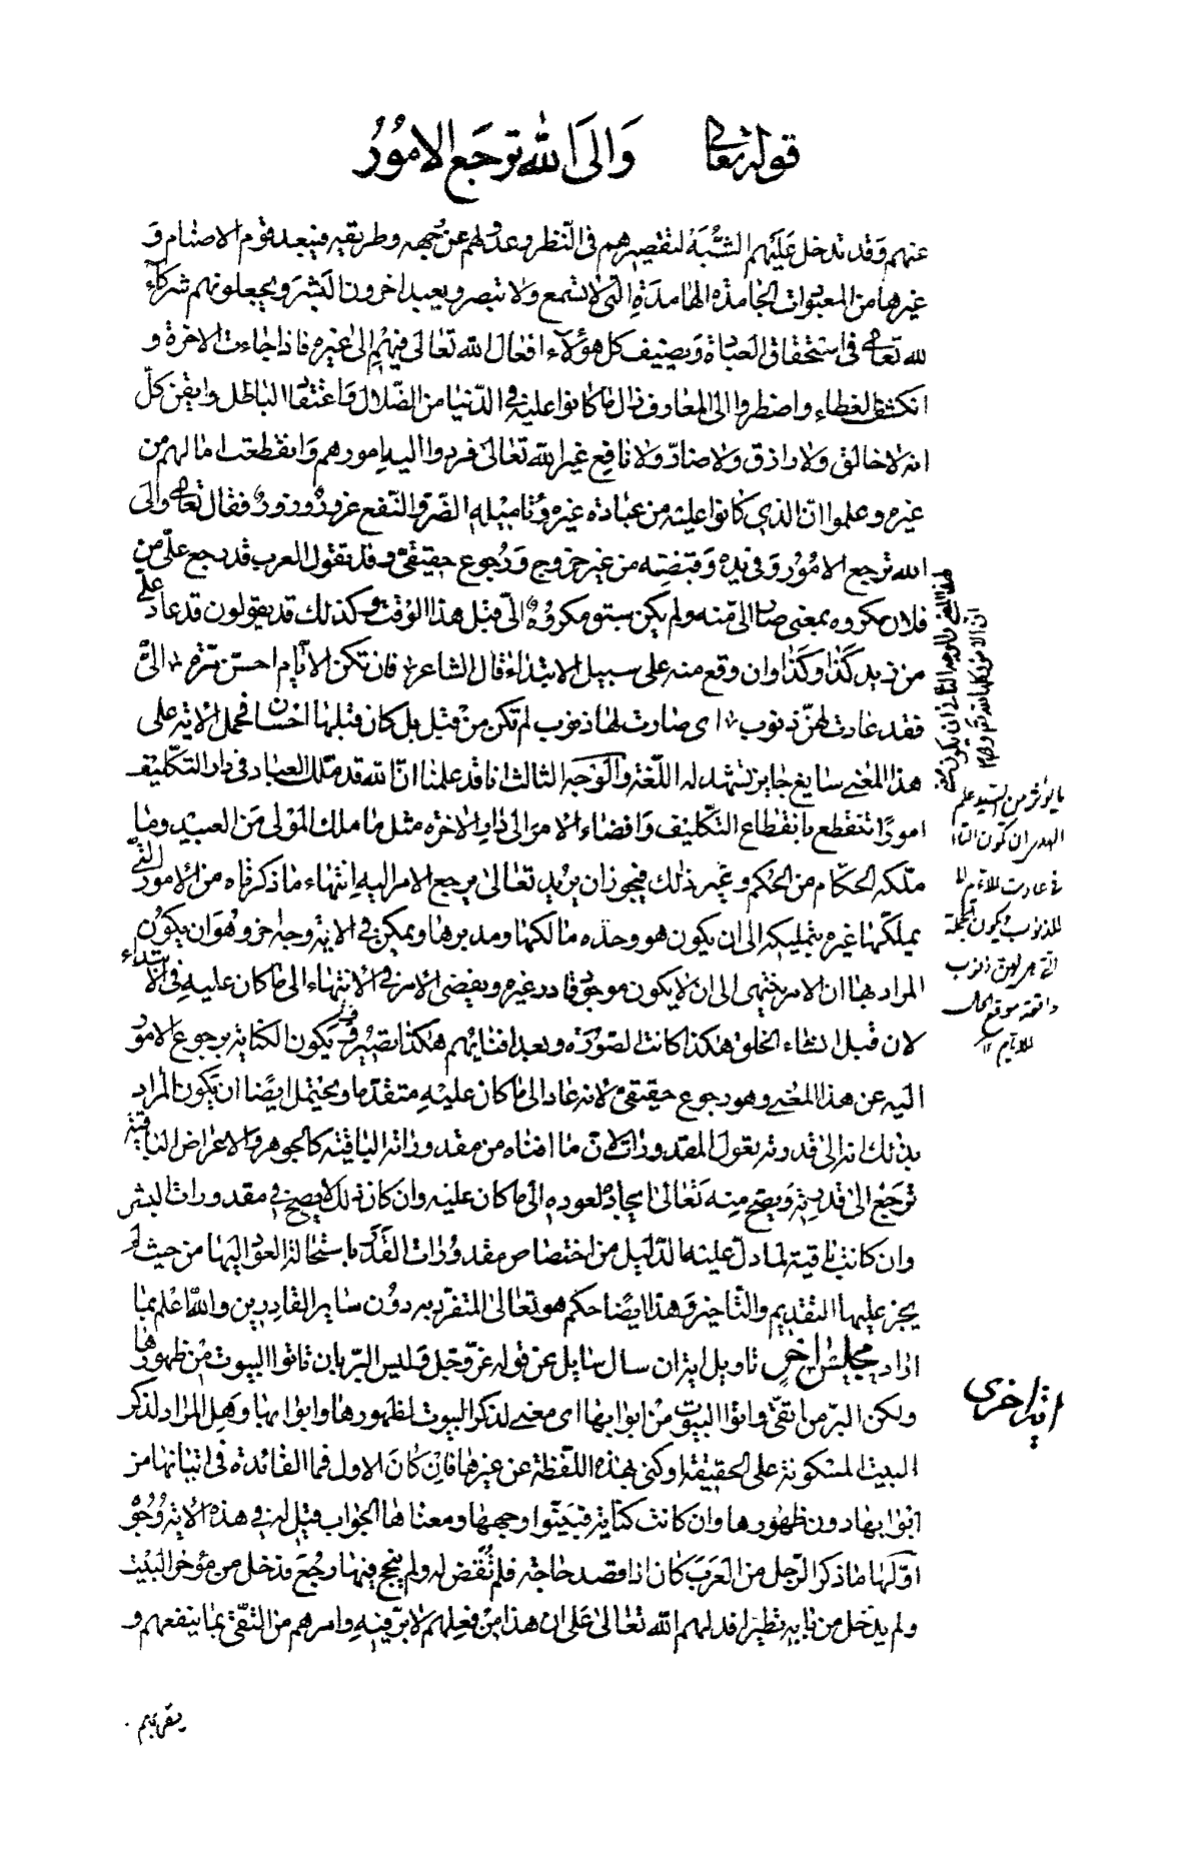 قوله تعالى وَالَى اللّٰه ترجَع الامُورُ
عنهم وَقد تدخل عَلَيهم الشُّبَهُ لتقصيرهم فى النّظر وعدولهم عن وجهه وطريقه فيعبد قوم الاصنام وَ
غيرها من المعبودات الجامدة الهامدَةِ التى لا تسمع ولا تبصر ويعبد اخرون البَشَرَ ويجعلونهم شركآء
لله تعالى فى استحقاق العبادة وَيضيف كل هؤلآء افعال الله تعَالىَ فيهم الى غيره فاذا جاءت الاخرة و
انكشف الغطاء واضطروا الى المعارف زال ما كانوا عليه فى الدّنيا من الضّلال وَاعتقاد الباطل وايقن كلّ
انه لا خالق وَلا رازق وَلا ضارّ وَلا نافع غير الله تعَالىَ فردوا اليه امورهم وَانقطعت امالهم من
غيره وعلموا انّ الذى كانوا عليه من عبادة غيره وتاميله للضّر والنّفع غرورٌ وزورٌ فقال تعالى والَى
الله ترجع الامُوُر وَفى يده وَقبضته من غير خروج وَرجُوع حقيقىّ وقد تقول العرب قد رجع علىّ من
فلان مكروه بمعنى صار الىّ منه ولم يكن سبق مكروهٌ الىّ قبل هذا الوقت وكذلك قد يقولون قد عاد علىّ
من زيد كَذا وَكَذا وان وقع منه على سبيل الابتداء قال الشاعر فان تكن الايّام احسنّ مرّة الىَّ
فقد عادت لهنّ ذنوب اى صارت لها ذنوب لم تكن من قبل بل كان قبلها احسان فحمل الاية على
هذا المعنى سايغ جايز تشهد له اللّغة والوَجه الثالث انا قد علمنا انّ الله قد ملّك العباد فى دار التكليف
امورًا تنقطع بانقطاع التكّليف وَافضاء الامر الى دار الاخره مثل ما ملك المَولى مَن العبيد وما
ملّكه الحكّام من الحُكم وغير ذلك فيجوز ان يريد تعالىٰ برجع الامر اليه انتهاء ما ذكرناه من الامور الّتى
يملّكها غيره بتمليكه الى ان يكون هو وحده مالكها ومدبرها ويمكن فى الاية وجه اخر وهُوَ ان يكوُن
المراد بها ان الامر ينتهى الى ان لا يكون موجود قادر غيره ويفضى الامر فى الانتهاء الى ما كان عليه فى الابتداء
لان قبل انشاء الخلق هكذا كانت الصّورَة وبعد افنائهم هكذا تصير وَتكون الكناية برجوع الامور
اليه عن هذا المعنى وهو رجوع حقيقىّ لانه عاد الى ما كان عليْهِ متقدّما ويحتمل ايضًا ان يَكون المراد
بذلك انه الى قدرته تعود المقدورات لانّ ما افناه من مقدوراته الباقية كالجوهر والاعراض الباقية
تَرجَعُ الى قدرته وَيصحّ منه تَعَالىٰ ايجاده لعوده الى ما كان عليه وان كان ذلك لا يصحّ فى مقدورات البشر
وان كانت باقية لما دلّ عليه الدّليل من اختصاص مقدوُرات القُدَر باستحالة العود اليها من حيث لم
يجز عليها التقديم والتّاخير وَهذا ايضًا حكم هو تعالىٰ المتفرّد به دوُن ساير القادرين والله اعلم بما
اراد مجلسٌ اخر تاويل اية ان سال سايل عن قوله عزّ وجّل وَليس البّر بان تاتوا البيوت من ظهورها
ولكن البرّ من اتقىّ واتوا البيوت منْ ابوابها اى معنى لذكر البيوت لظهورها وابوابها وَهل المراد لذكر
البيت المسكونة على الحقيقة او كنى بهذه اللّفظة عن غيرها فاِن كَانَ الاول فما الفائدة فى اتيانها من
ابوابها دون ظهُورها وان كانت كناية فبَيّنُوا وجهها ومعناها الجواب قيل له فى هذه الاية وُجُوٌ
اوّلها ما ذكر الرّجل من العَرَب كان اذا قصد حاجة فلم تُقَض له ولم ينجح فيها رجُعَ فدخل من مؤخر البَيْت
ولم يدخل من بابه تطيّرا فدلهم الله تعَالىٰ عَلى ان هذا من فعلهم لا بِرّ فيهِ وامرهم من التقّى بما ينفعهم و
هذا المعنى للوجه الثانى ان يكون
ان الامور كلها لله تع
ما يؤثر من السيّد علم
الهدى ان تكون التاء
فى عادت للايام لا
للذنوب وتكون الجملة
التى هى لهنّ ذنوب
واقعة موقع الحال
للايام ١٢
اية اخرى
يقربهم .